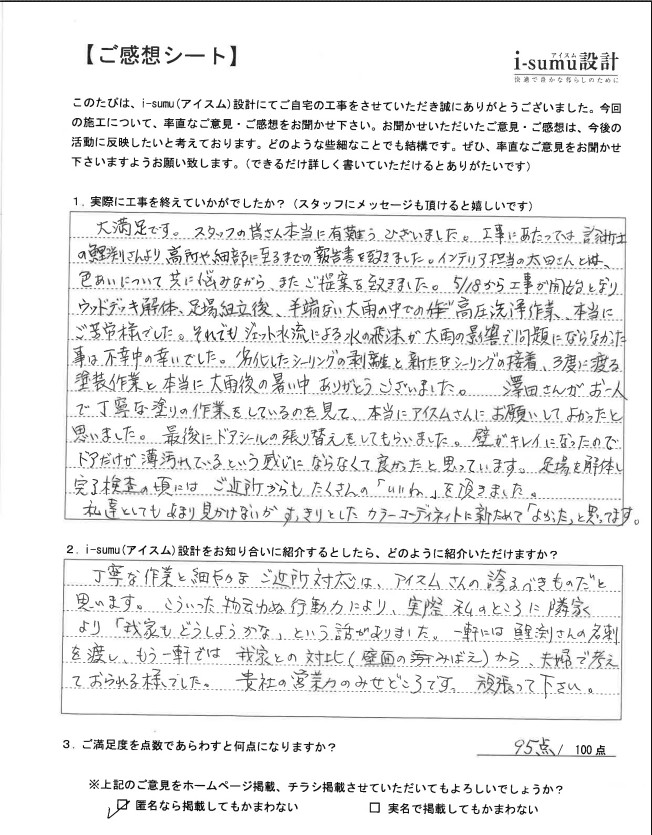 【ご感想シート】
アイスム
i-sumu設計
快適で豊かな暮らしのために
このたびは、i-sumu(アイスム)設計にてご自宅の工事をさせていただき誠にありがとうございました。今回
の施工について、率直なご意見・ご感想をお聞かせ下さい。お聞かせいただいたご意見・ご感想は、今後の
活動に反映したいと考えております。どのような些細なことでも結構です。ぜひ、率直なご意見をお聞かせ
下さいますようお願い致します。(できるだけ詳しく書いていただけるとありがたいです)
1. 実際に工事を終えていかがでしたか？(スタッフにメッセージも頂けると嬉しいです)
大満足です。スタッフの皆さん本当に有難うございました。工事にあたっては診断士
の鯉渕さんより高所や細部に至るまでの報告書を頂きました。インテリア担当の太田さんとは、
色あいについて共に悩みながら、またご提案を頂きました。5/18から工事が開始となり
ウッドデッキ解体、足場組立後、半端ない大雨の中での高圧洗浄作業、本当に
ご苦労様でした。それでもジェット水流による水の飛沫が大雨の影響で問題にならなかった
事は不幸中の幸いでした。劣化したシーリングの剥離と新たなシーリングの接着、3度に渡る
塗装作業と本当に大雨後の暑い中ありがとうございました。澤田さんがお一人
で丁寧な塗りの作業をしているのを見て、本当にアイスムさんにお願いしてよかったと
思いました。最後にドアシールの張り替えをしてもらいました。壁がキレイになったので
ドアだけが薄汚れているという感じにならなくて良かったと思っています。足場を解体し
完了検査の頃にはご近所からもたくさんの「いいね」を頂きました。
私達としてもあまり見かけないがすっきりとしたカラーコーディネイトに新ためて「よかった」と思ってます。
2. i-sumu(アイスム)設計をお知り合いに紹介するとしたら、どのように紹介いただけますか？
丁寧な作業と細やかなご近所対応は、アイスムさんの誇るべきものだと
思います。こういった行動力により、実際私のところに隣家
より「我家もどうしようかな」という話がありました。一軒には鯉渕さんの名刺
を渡し、もう一軒では我家との対比(壁面のみばえ)から、夫婦で考え
ておられる様でした。貴社の営業力のみせどころです。頑張って下さい。
3. ご満足度を点数であらわすと何点になりますか？
95点/100点
※上記のご意見をホームページ掲載、チラシ掲載させていただいてもよろしいでしょうか？
☑ 匿名なら掲載してもかまわない □ 実名で掲載してもかまわない